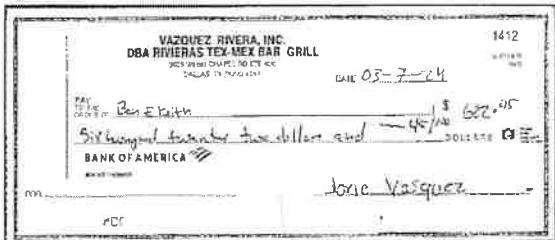 VAZQUEZ RIVERA, INC.
DBA RIVIERAS TEX-MEX BAR GRILL
1412
DATE 03-7-24
PAY
TO THE
ORDER OF Ben E Keith $ 622.45
Six hunred twenty two dollars and 45/100 DOLLARS
BANK OF AMERICA
Jorie Vasquez
FOR